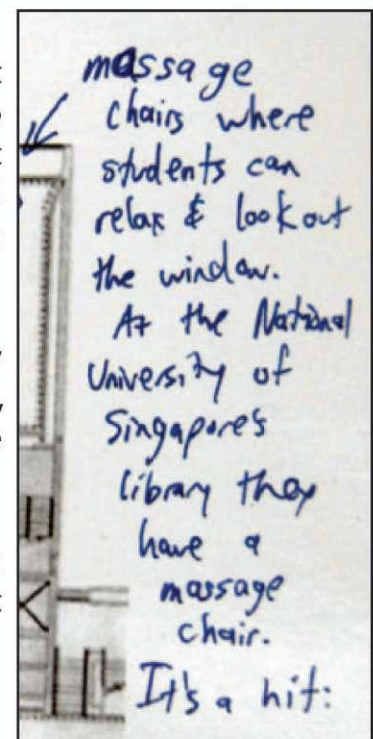 massage
chairs where
students can
relax & look out
the window.
At the National
University of
Singapore's
library they
have a
massage
chair.
It's a hit: